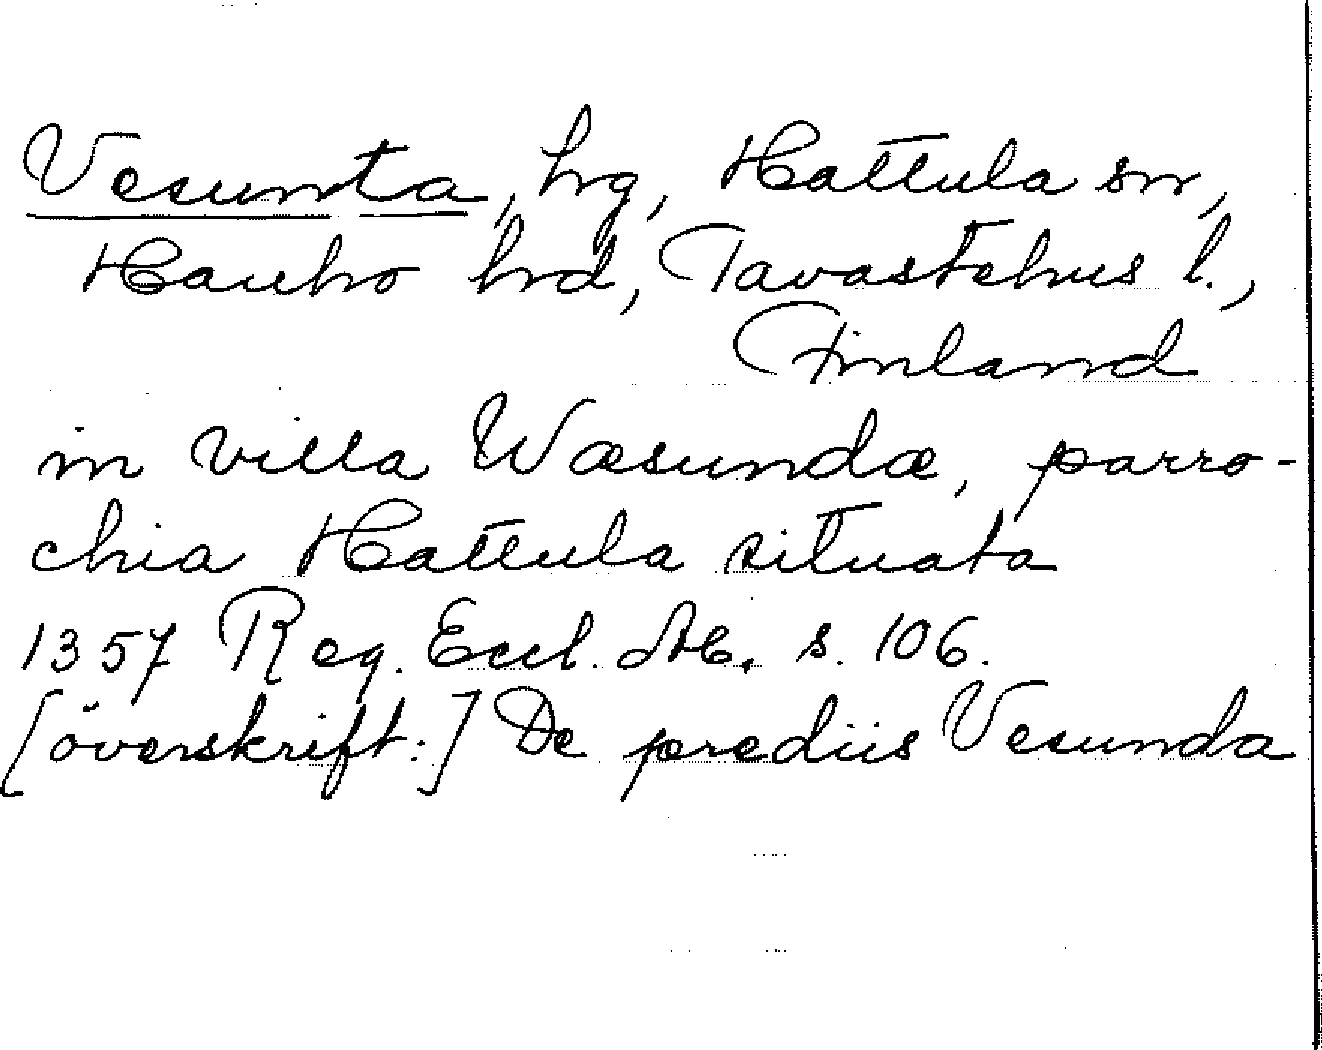 Vesunta, hg, Hattula sn,
Hauho hrd, Tavastehus l.,
Finland
in villa Wæsundæ, parro-
chia Hattula situata
1357 Reg. Eccl. Ab. s. 106.
[överskrift:] De prediis Vesunda